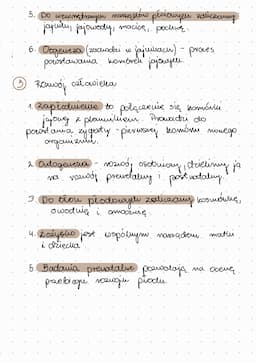 5. Do wewnętrznych narządów płciowych zaliczamy
jajniki, jajowody, macicę, pochwę.
6. Oogeneza (zachodzi w jajnikach) - proces
powstawania komórek jajowych.
3 Rozwój człowieka
1. Zapłodnienie to połączenie się komórki
jajowej z plemnikiem. Prowadzi do
powstania zygoty - pierwszej komórki nowego
organizmu.
2. Ontogeneza - rozwój osobniczy, dzielimy ją
na rozwój prenatalny i postnatalny.
3. Do błon płodowych zaliczamy kosmówkę,
owodnię i omocznię.
4. Łożysko jest wspólnym narządem matki
i dziecka.
5. Badania prenatalne pozwalają na ocenę
przebiegu rozwoju płodu.